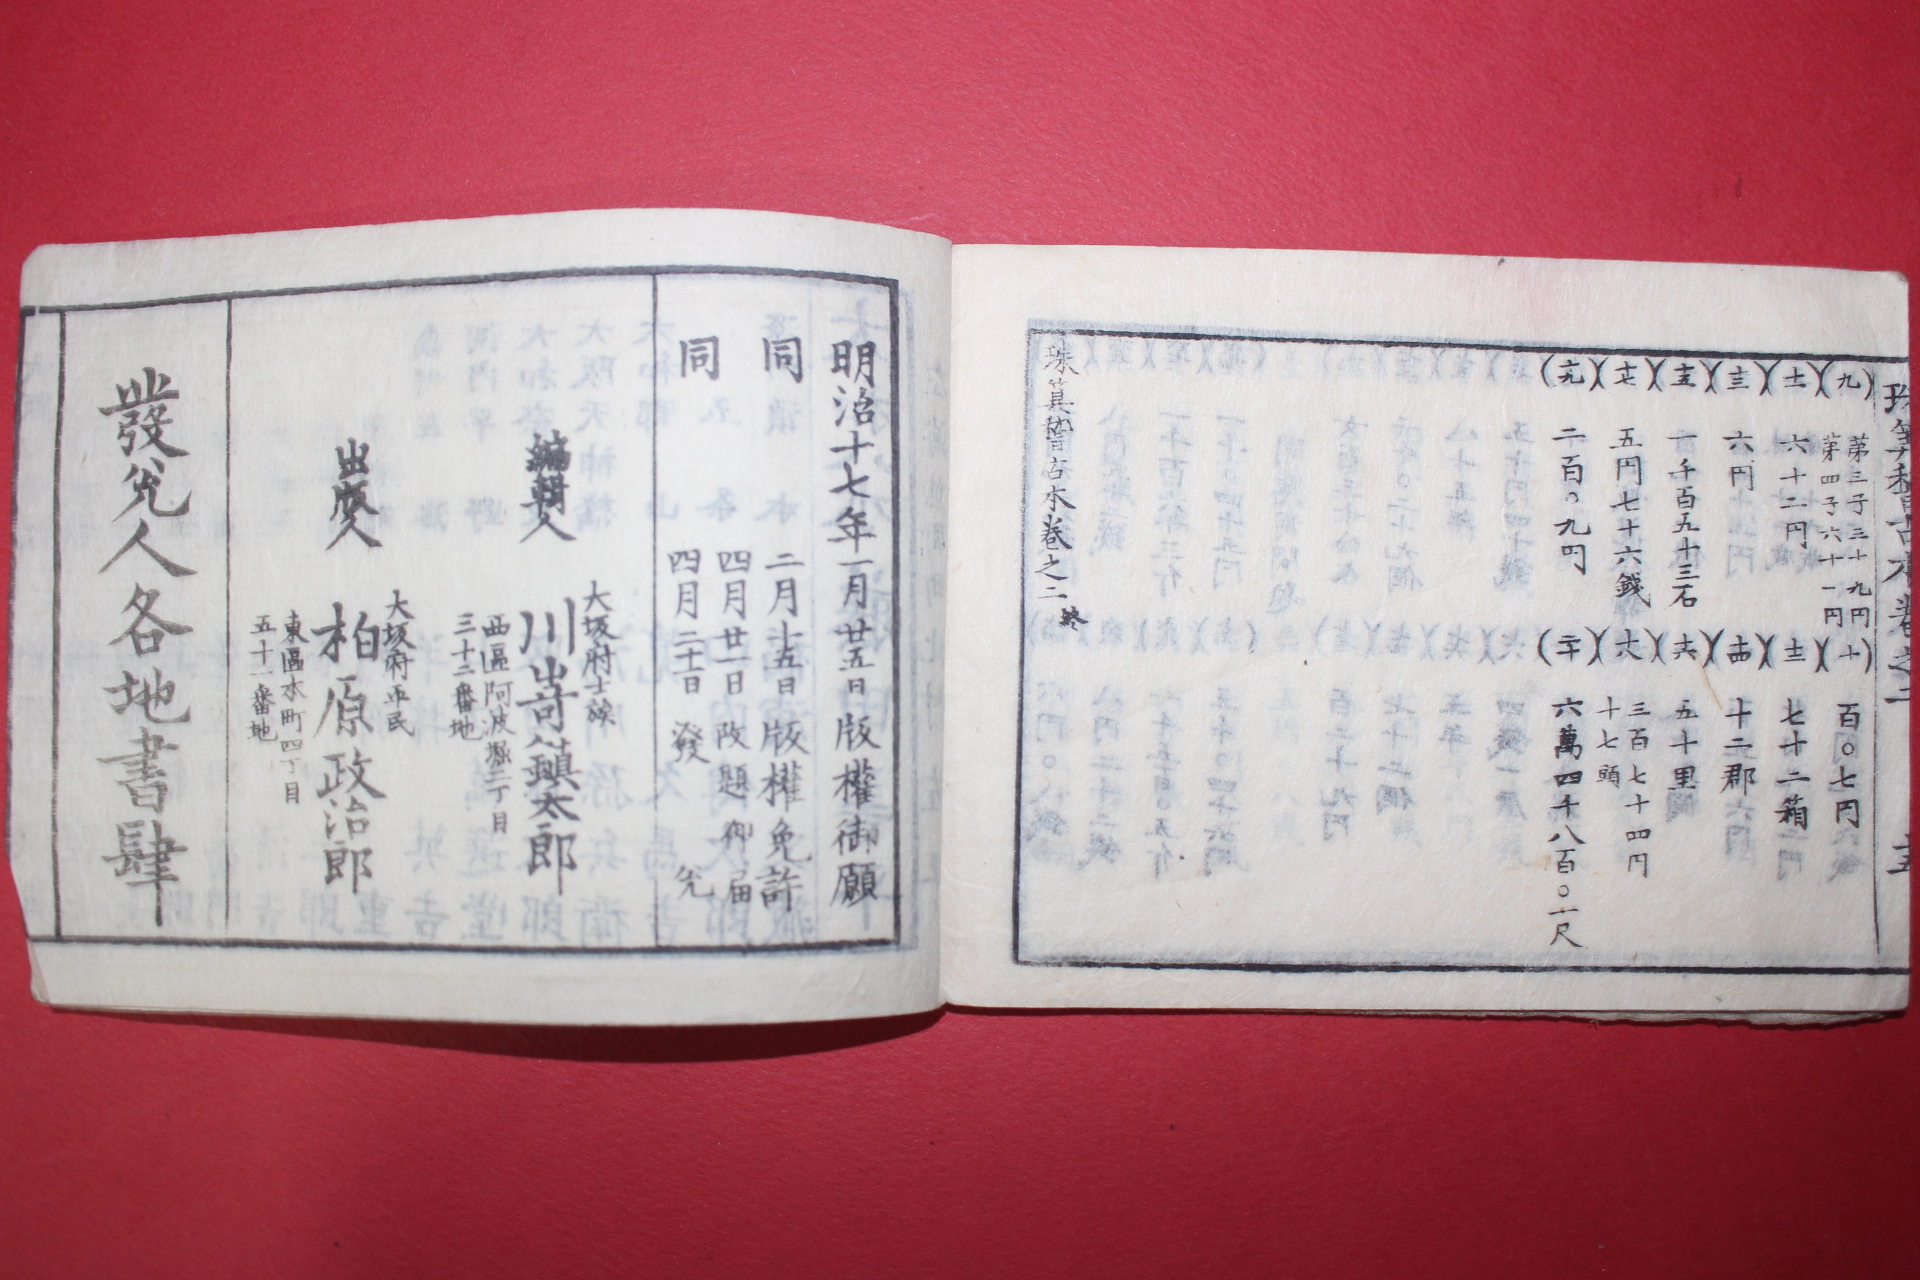 九 第三子三十九円
第四子六十一円
十 百〇七円
十一 六十二円
十二 七十二箱
十三 六円
十四 十二郡
十五 一千百五十三石
十六 五十里
十七 五円七十六錢
十八 三百七十四円
十七頭
十九 二百〇九円
二十 六萬四千八百〇一尺
珠算稽古本巻之二 終
明治十七年一月廿五日版權御願
同 二月十五日版權免許
四月廿一日改題御届
同 四月二十日發兌
編輯人
大坂府士族
川嵜鎮太郎
西區阿波堀二丁目
三十二番地
出版人
大坂府平民
柏原政治郎
東區本町四丁目
五十一番地
發兌人各地書肆